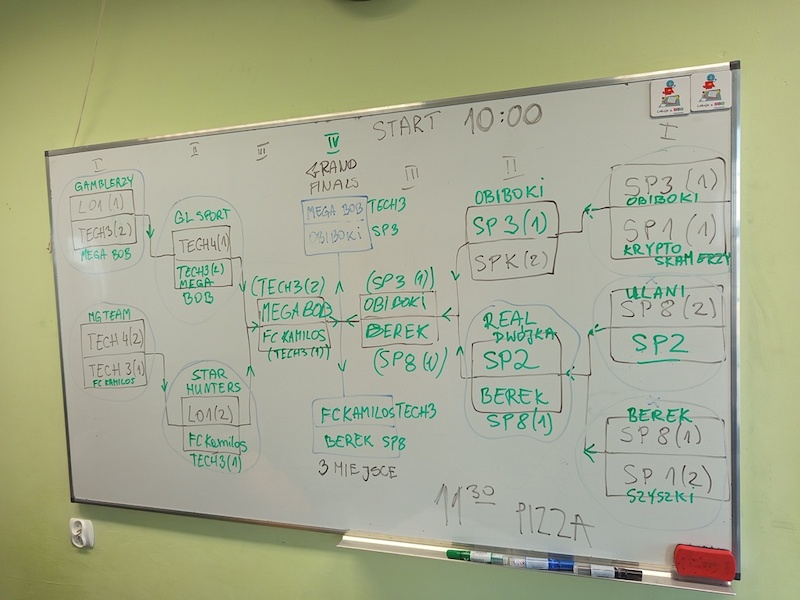 START 10:00
I
II
III
IV
III
II
I
GRAND
FINALS
GAMBLERZY
LO1(1)
TECH3(2)
MEGA BOB
MGTEAM
TECH 4(2)
TECH 3(1)
FC KAMILOS
GL SPORT
TECH4(1)
TECH3(2)
MEGA
BOB
STAR
HUNTERS
LO1(2)
FC Kamilos
TECH3(1)
(TECH3(2)
MEGA BOB
FC KAMILOS
(TECH3(1)
MEGA BOB TECH3
OBIBOKI SP3
FC KAMILOS TECH3
BEREK SP8
3 MIEJSCE
(SP3(1)
OBIBOKI
BEREK
(SP8(1)
OBIBOKI
SP3(1)
SPK(2)
REAL
DWÓJKA
SP2
BEREK
SP8(1)
SP3(1)
OBIBOKI
SP1(1)
KRYPTO
SKAMERZY
ULANI
SP8(2)
SP2
BEREK
SP8(1)
SP1(2)
SZYSZKI
11:30 PIZZA